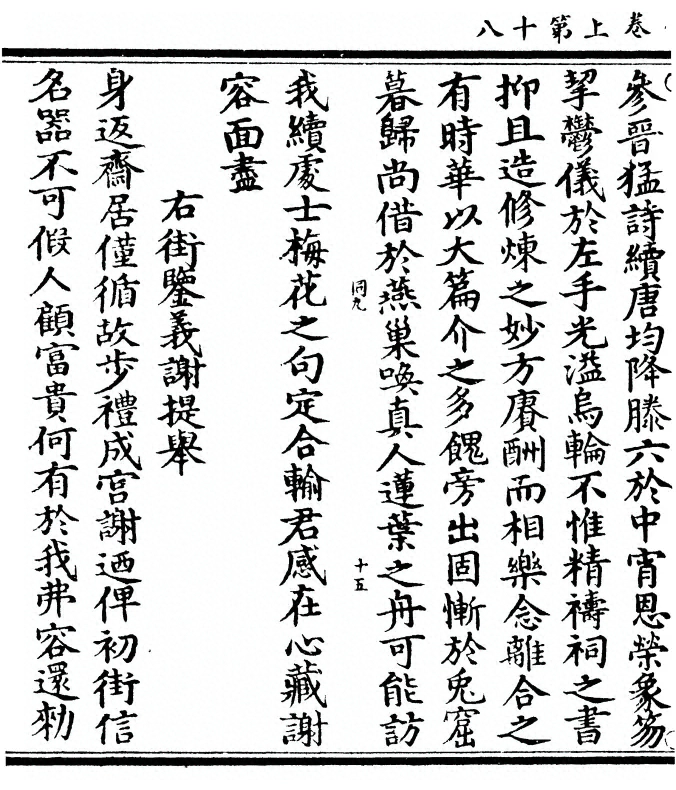 卷上第十八
參晉猛詩續唐均降滕六於中宵恩榮象笏
挈鬱儀於左手光溢烏輪不惟精禱祠之書
抑且造修煉之妙方賡酬而相樂念離合之
有時華以大篇介之多餽旁出固慚於兎窟
暮歸尚借於燕巢喚真人蓮葉之舟可能訪
同九
十五
我續處士梅花之句定合輸君感在心藏謝
容面盡
右街鑒義謝提舉
身返齋居僅循故步禮成宮謝迺俾初街信
名器不可假人顧富貴何有於我弗容還勑